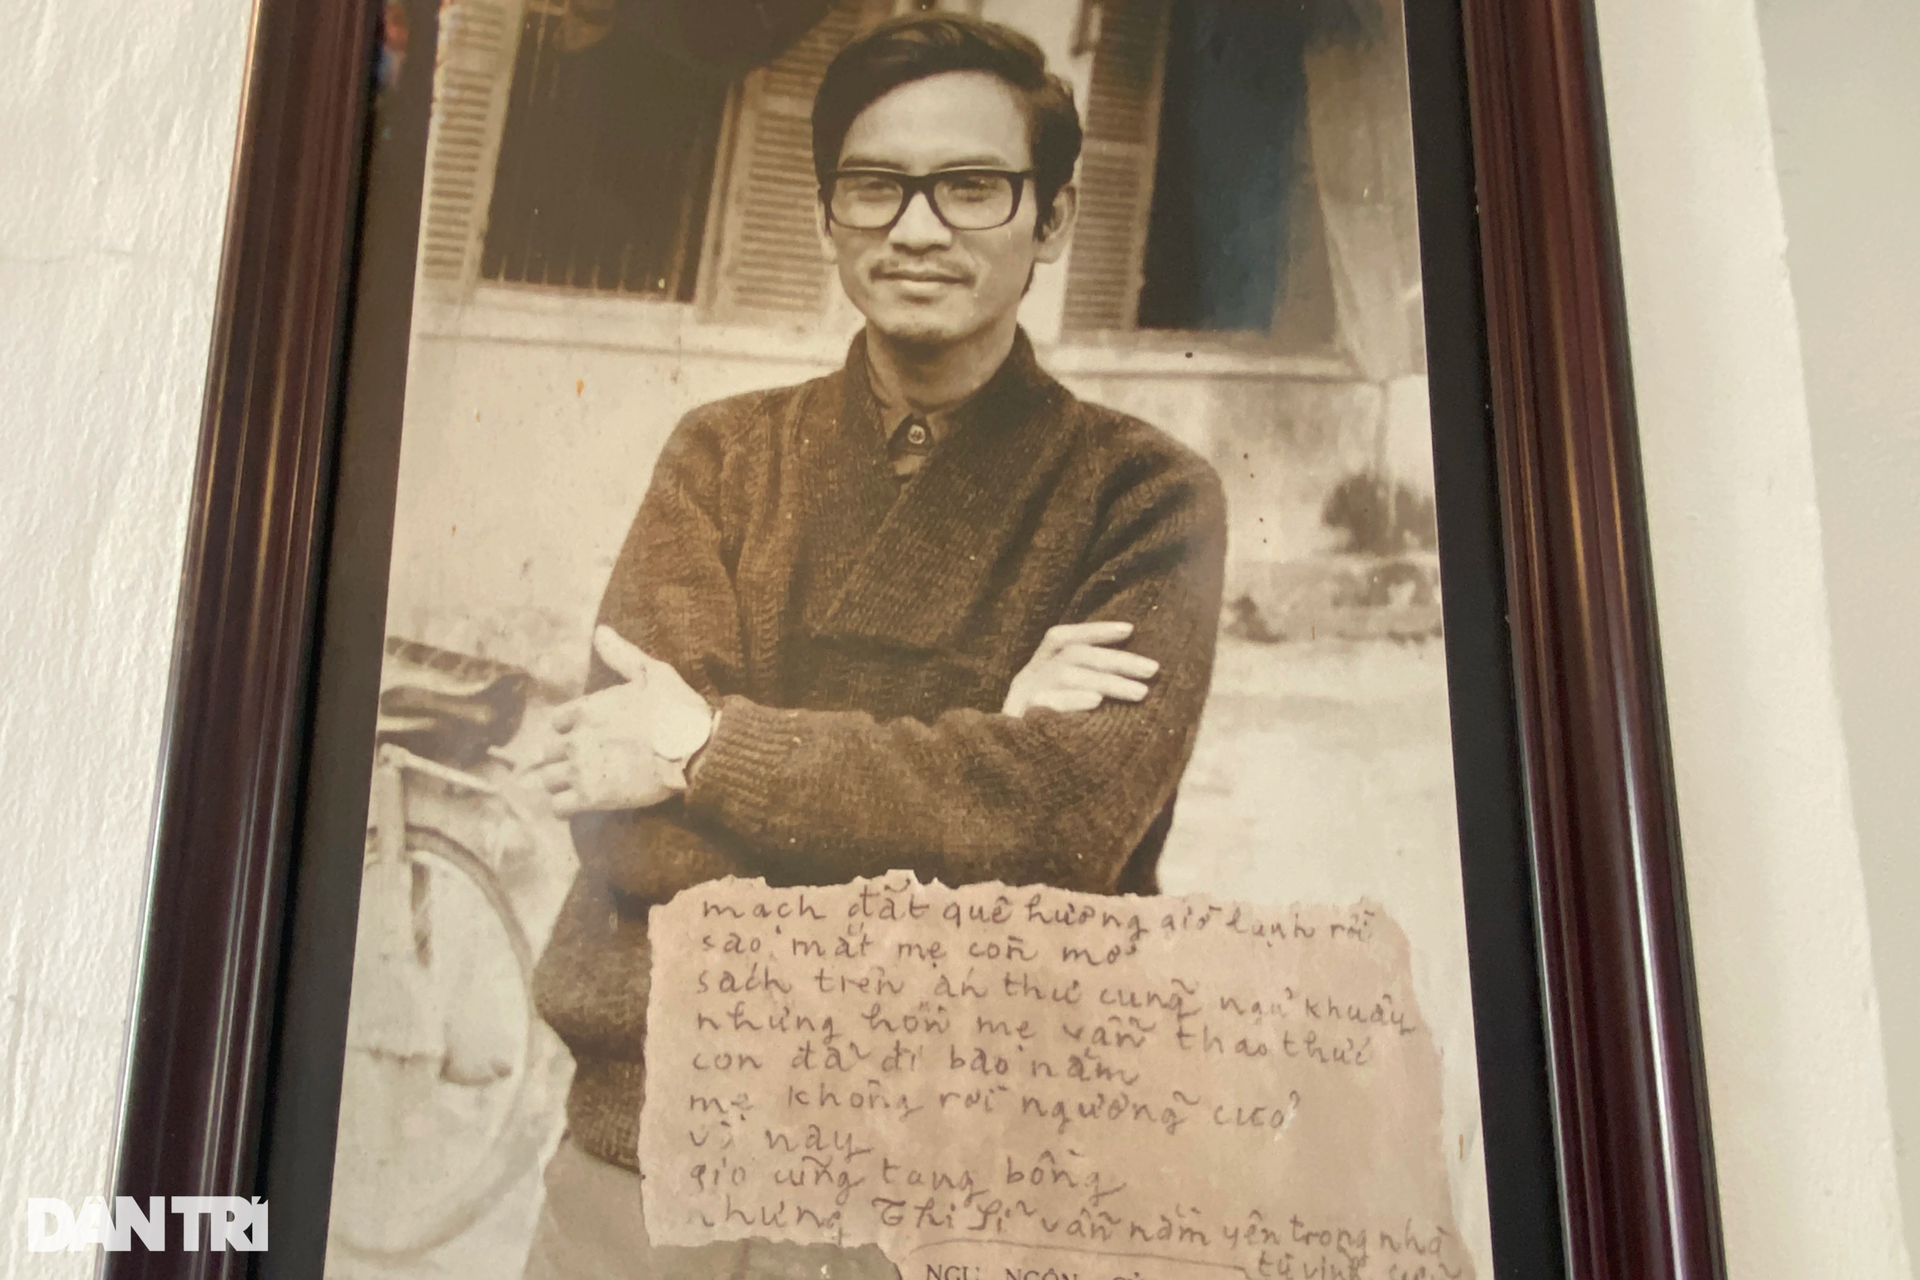 mạch đất quê hương giờ lạnh rồi
sao mắt mẹ còn mở
sách trên án thư cũng ngủ khuây
nhưng hồn mẹ vẫn thao thức
con đã đi bao năm
mẹ không rời ngưỡng cửa
vì nay
gió cũng tang bồng
nhưng Thi Sĩ vẫn nằm yên trong nhà
NGỤ NGÔN
DÂN TRÍ